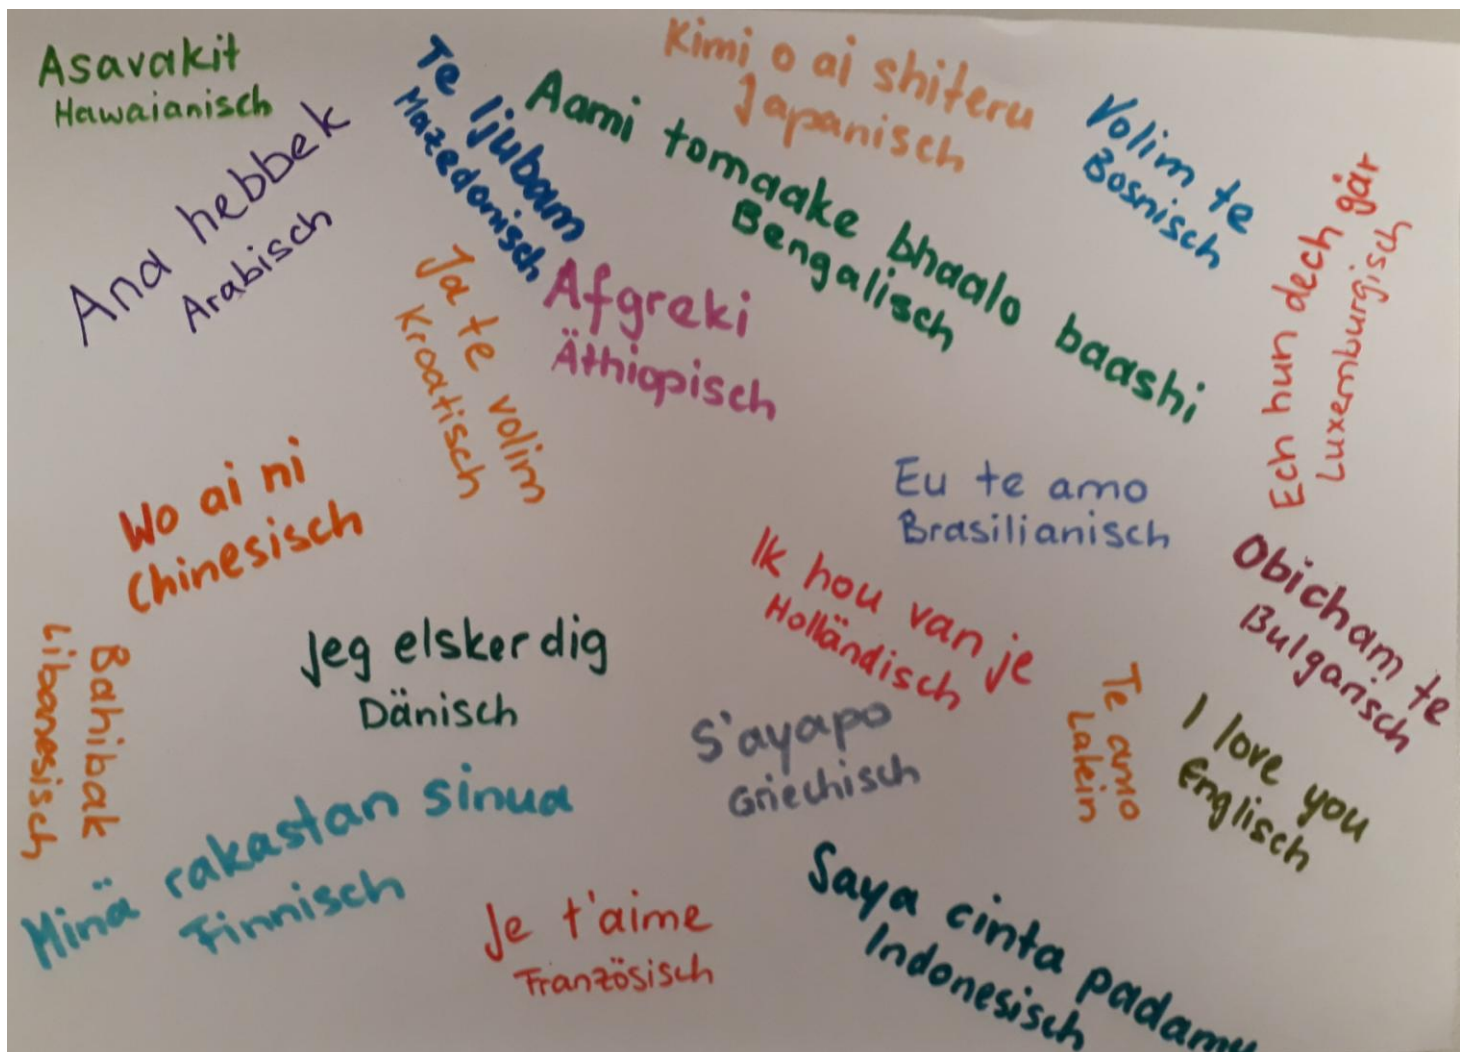 Asavakit
Hawaianisch
Ana hebbek
Arabisch
Te ljubam
Mazedonisch
Aami tomaake bhaalo baashi
Bengalisch
Kimi o ai shiteru
Japanisch
Volim te
Bosnisch
Ech hun dech gär
Luxemburgisch
Ja te volim
Kroatisch
Afgreki
Äthiopisch
Wo ai ni
Chinesisch
Eu te amo
Brasilianisch
Ik hou van je
Holländisch
Obicham te
Bulgarisch
Bahibak
Libanesisch
Jeg elsker dig
Dänisch
S'ayapo
Griechisch
Te amo
Latein
I love you
Englisch
Minä rakastan sinua
Finnisch
Je t'aime
Französisch
Saya cinta padamu
Indonesisch